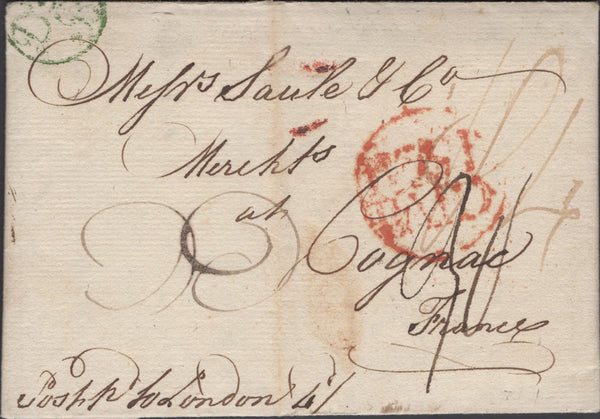 Messrs Saule & Co
Merchts
at
Cognac
France
Post pd to London 4/